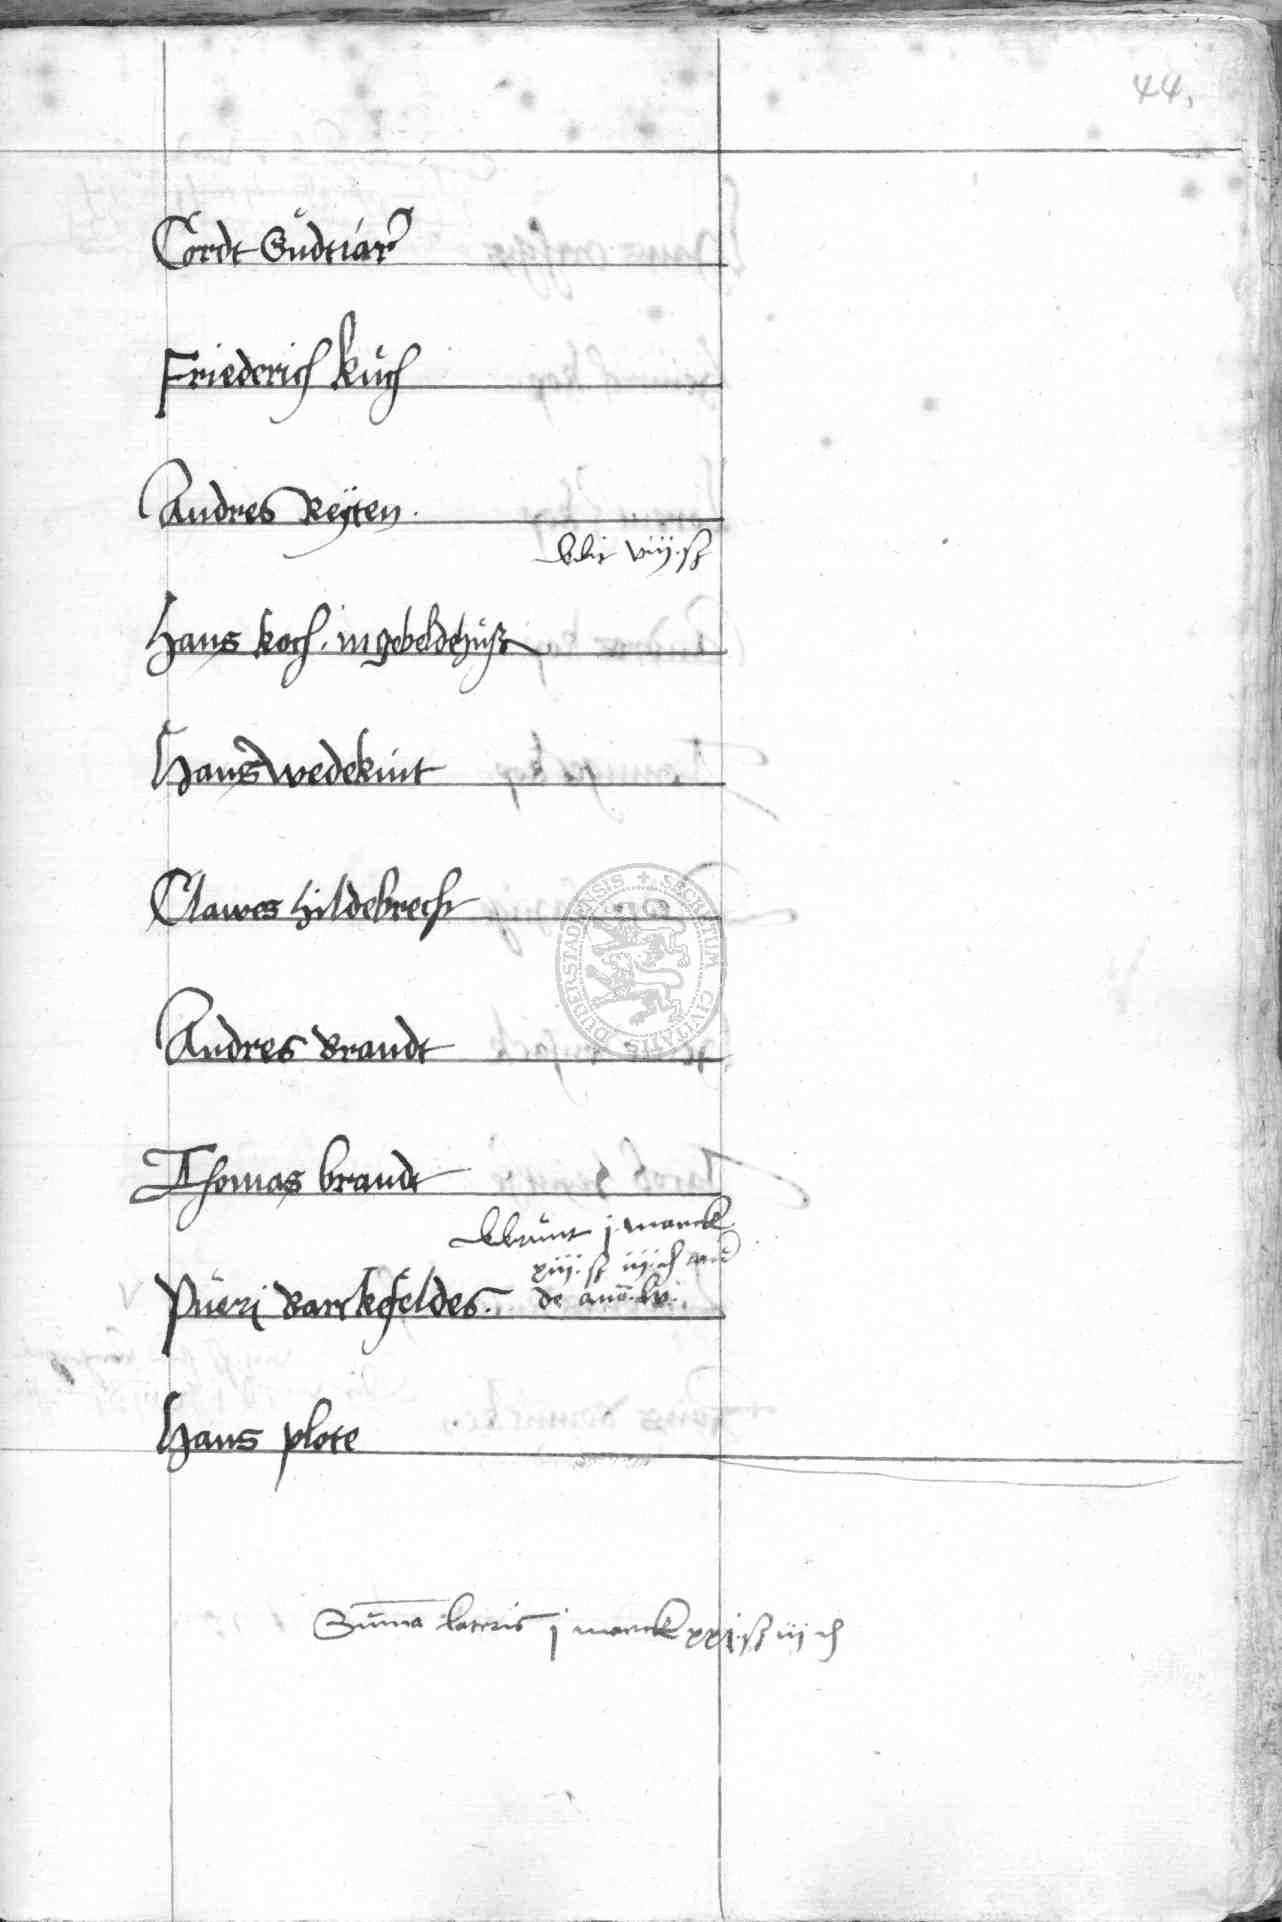 44.
Cordt Gudtiar
Friederich kuch
Andres Reyten.
viij. ß
Hans koch. in gebeldehuß
Hans wedekint
Clawes hildebrecht
Andres Brandt
Thomas brandt
j marck
xiij. ß iij. ₰
de anno. lv.
Pueri Barckefeldes.
Hans plote
Suma lateris j marck xxj. ß iij ₰
SECRETUM CIVITATIS DUDERSTADIENSIS